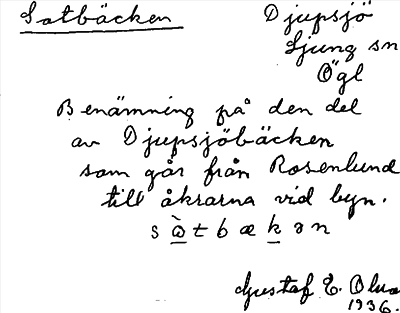 Satbäcken Djupsjö
Ljung sn
Ögl
Benämning på den del
av Djupsjöbäcken
som går från Rosenlund
till åkrarna vid byn.
s ὰ t b æ k ə n
Gustaf E.
1936.